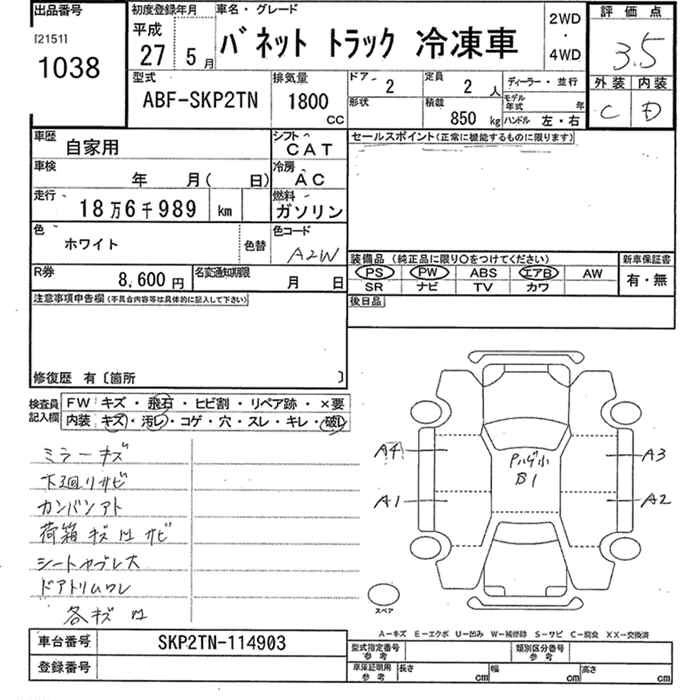 出品番号
[2151]
1038
初度登録年月
平成
27 5月
車名・グレード
バネット トラック 冷凍車
2WD
・
4WD
評価点
3.5
外装 内装
C D
型式
ABF-SKP2TN
排気量
1800
cc
ドア
2
定員
2人
形状
積載
850 kg
ディーラー・並行
モデル年式 年
ハンドル 左・右
車歴
自家用
シフト
CAT
車検
年 月( 日)
冷房
AC
走行
18万6千989 km
燃料
ガソリン
色
ホワイト
色替
色コード
A2W
R券
8,600円
名変通知期限
月 日
セールスポイント(正常に機能するものに限ります)
装備品 (純正品に限り〇をつけてください)
PS PW ABS エアB AW
SR ナビ TV カワ
新車保証書
有・無
後日品
注意事項申告欄 (不具合内容等は具体的に記入して下さい)
修復歴 有〔箇所 〕
検査員記入欄
FW キズ・飛石・ヒビ割・リペア跡・×要
内装 キズ・汚レ・コゲ・穴・スレ・キレ・破レ
ミラーキズ
下廻リサビ
カンバンアト
荷箱キズ凹サビ
シートヤブレ大
ドアトリムワレ
各キズ凹
A4
A1
Pハゲ小
B1
A3
A2
スペア
A-キズ E-エクボ U-凹み W-補修跡 S-サビ C-腐食 XX-交換済
車台番号
SKP2TN-114903
登録番号
型式指定番号
参考
類別区分番号
参考
車庫証明用
参考
長さ cm 幅 cm 高さ cm